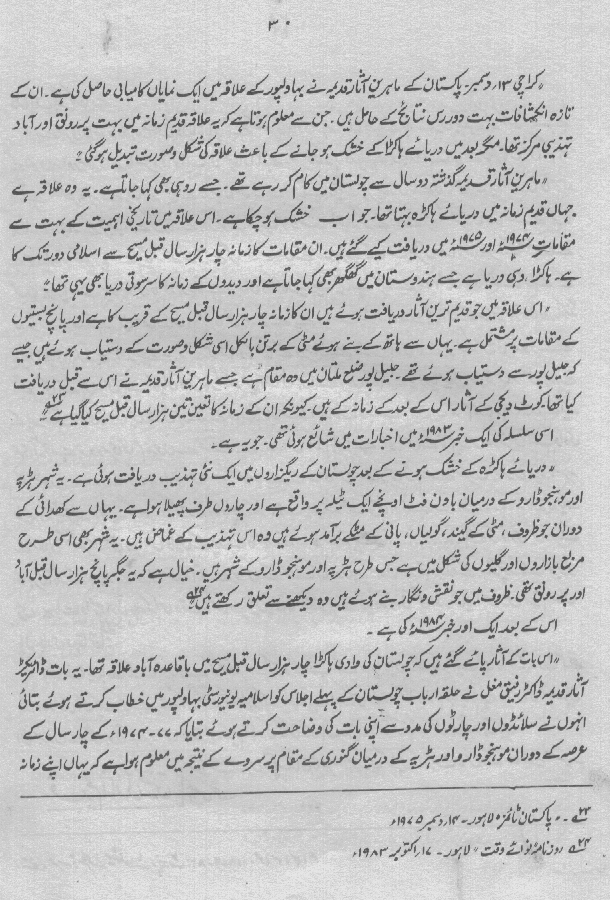 ۳۰
"کراچی ۱۳ر دسمبر پاکستان کے ماہرینِ آثار قدیمہ نے بہاولپور کے علاقہ میں ایک نمایاں کامیابی حاصل کی ہے۔ ان کے
تازہ انکشافات بہت دور رس نتائج کے حامل ہیں۔ جن سے معلوم ہوتا ہے کہ یہ علاقہ قدیم زمانہ میں بہت پر رونق اور آباد
تہذیبی مرکز تھا۔ مگر بعد میں دریائے ہاکڑا کے خشک ہو جانے کے باعث علاقہ کی شکل و صورت تبدیل ہو گئی"
"ماہرین آثار قدیمہ گذشتہ دو سال سے چولستان میں کام کر رہے تھے۔ جسے روہی بھی کہا جاتا ہے۔ یہ وہ علاقہ ہے
جہاں قدیم زمانہ میں دریائے ہاکڑہ بہتا تھا۔ جو اب خشک ہو چکا ہے۔ اس علاقہ میں تاریخی اہمیت کے بہت سے
مقامات ۱۹۷۴ء اور ۱۹۷۵ء میں دریافت کیے گئے ہیں۔ ان مقامات کا زمانہ چار ہزار سال قبل مسیح سے اسلامی دور تک کا
ہے۔ ہاکڑا، وہی دریا ہے جسے ہندوستان میں گھگھر بھی کہا جاتا ہے اور ویدوں کے زمانہ کا سرسوتی دریا بھی یہی تھا"
"اس علاقہ میں جو قدیم ترین آثار دریافت ہوئے ہیں ان کا زمانہ چار ہزار سال قبل مسیح کے قریب کا ہے اور پانچ بستیوں
کے مقامات پر مشتمل ہے۔ یہاں سے ہاتھ کے بنے ہوئے مٹی کے برتن بالکل اسی شکل و صورت کے دستیاب ہوئے ہیں جیسے
کہ جلیل پور سے دستیاب ہوئے تھے۔ جلیل پور ضلع ملتان میں وہ مقام ہے جسے ماہرین آثار قدیمہ نے اس سے قبل دریافت
کیا تھا۔ کوٹ ڈیجی کے آثار اس کے بعد کے زمانہ کے ہیں۔ کیونکہ ان کے زمانہ کا تعین تین ہزار سال قبل مسیح کیا گیا ہے"
اسی سلسلہ کی ایک خبر ۱۹۸۳ء میں اخبارات میں شائع ہوئی تھی۔ جو یہ ہے۔
"دریائے ہاکڑہ کے خشک ہونے کے بعد چولستان کے ریگزاروں میں ایک نئی تہذیب دریافت ہوئی ہے۔ یہ شہر ہڑپہ
اور موہنجوڈارو کے درمیان باون فٹ اونچے ایک ٹیلہ پر واقع ہے اور چاروں طرف پھیلا ہوا ہے۔ یہاں سے کھدائی کے
دوران جو ظروف، مٹی کے گیند، گولیاں، پانی کے مٹکے برآمد ہوئے ہیں وہ اس تہذیب کے غماض ہیں۔ یہ شہر بھی اسی طرح
مربع بازاروں اور گلیوں کی شکل میں ہے جس طرح ہڑپہ اور موہنجوڈارو کے شہر ہیں۔ خیال ہے کہ یہ جگہ پانچ ہزار سال قبل آباد
اور پر رونق تھی۔ ظروف میں جو نقش و نگار بنے ہوئے ہیں وہ دیکھنے سے تعلق رکھتے ہیں"
اس کے بعد ایک اور خبر ۱۹۸۴ء کی ہے۔
"اس بات کے آثار پائے گئے ہیں کہ چولستان کی وادی ہاکڑا چار ہزار سال قبل مسیح میں باقاعدہ آباد علاقہ تھا۔ یہ بات ڈائریکٹر
آثار قدیمہ ڈاکٹر رفیق مغل نے حلقہ ارباب چولستان کے پہلے اجلاس کو اسلامیہ یونیورسٹی بہاولپور میں خطاب کرتے ہوئے بتائی
انہوں نے سلائڈوں اور چارٹوں کی مدد سے اپنی بات کی وضاحت کرتے ہوئے بتایا کہ ۷۷-۱۹۷۴ء کے چار سال کے
عرصہ کے دوران موہنجوڈارو اور ہڑپہ کے درمیان گنوری کے مقام پر سروے کے نتیجہ میں معلوم ہوا ہے کہ یہاں اپنے زمانہ
۲۳ے۔ "پاکستان ٹائمز" لاہور۔ ۱۴ر دسمبر ۱۹۷۵ء
۲۴ے روزنامہ "نوائے وقت" لاہور۔ ۱۷ر اکتوبر ۱۹۸۳ء